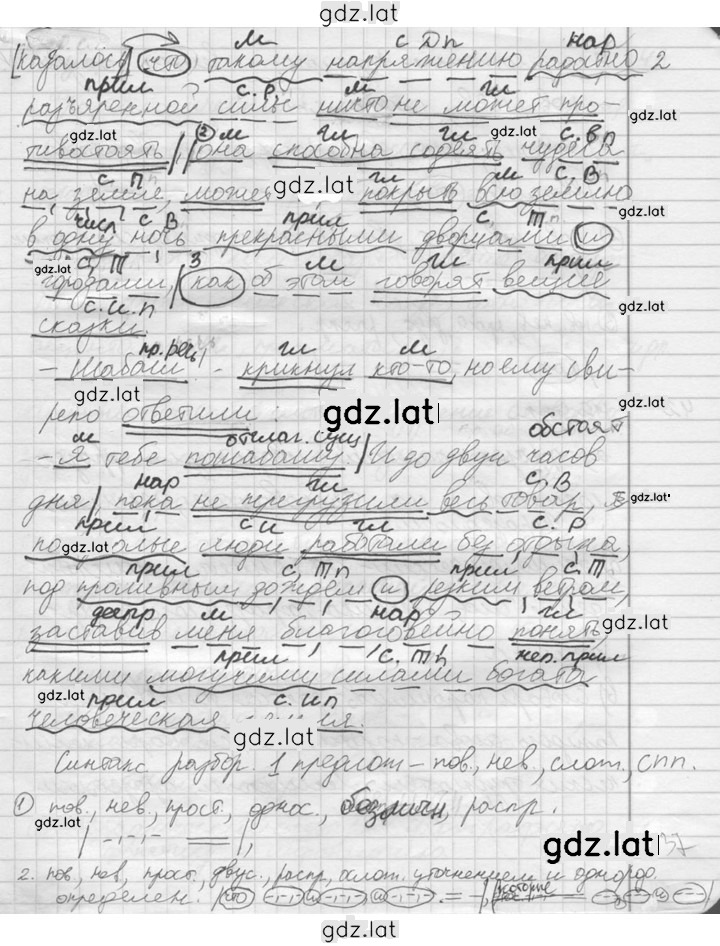 gdz.lat
м с Дп нар
[казалось, что такому напряжению радостно 2
прил с.р. м гл
разъяренной силы ничто не может про-
gdz.lat
2 м гл гл gdz.lat с.вп
тивостоять], она способна содеять чудеса
с п гл м с, В
на земле, может gdz.lat покрыть всю землю gdz.lat
числ с В прил с, Тп
в одну ночь прекрасными дворцами и
gdz.lat с, Т 3 м гл прил
городами, как об этом говорят вещие
с.и.п gdz.lat
сказки.
гл м
- Шабаш! - крикнул кто-то, но ему сви-
gdz.lat gdz.lat
репо ответили: gdz.lat
м отглаг. сущ обстоят
- Я тебе пошабашу! И до двух часов
нар гл с, В
дня, пока не перегрузили весь товар, gdz.lat
прил с и гл с. Р
gdz.lat люди работали без отдыха,
прил с. Тп прил с, Т
под проливным дождем и резким ветром,
деепр м нар гл
заставив меня благоговейно понять, gdz.lat
прил с. Тп
какими могучими силами богата
gdz.lat прил с. ип
человеческая
gdz.lat
Синтакс разбор. 1 предлож - пов., нев., слож., спп.
1 пов., нев., прост., однос., безличн, распр.
gdz.lat
gdz.lat 37
2. пов, нев, прост, двус., распр, ослож. уточнением и однород.
определен. что
gdz.lat